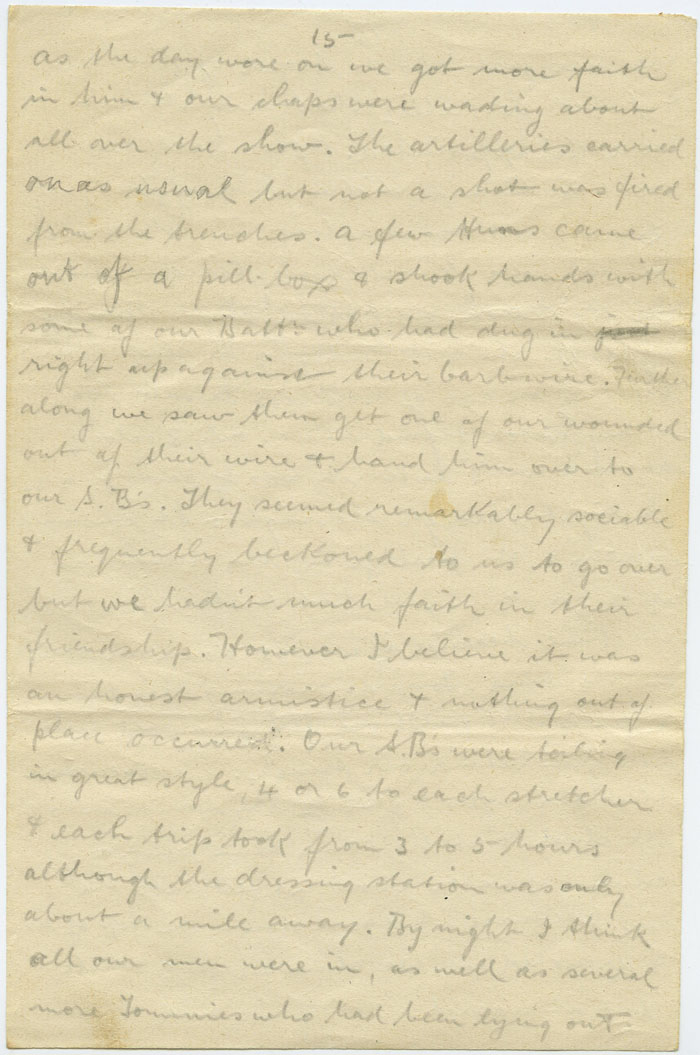 15
as the day wore on we got more faith
in him & our chaps were wading about
all over the show. The artilleries carried
on as usual but not a shot was fired
from the trenches. A few Huns came
out of a pill-box & shook hands with
some of our Battn who had dug in just
right up against their barb wire. Further
along we saw them get one of our wounded
out of their wire & hand him over to
our S.B's. They seemed remarkably sociable
& frequently beckoned to us to go over
but we hadn't much faith in their
friendship. However I believe it was
an honest armistice & nothing out of
place occurred. Our S.B's were toiling
in great style, 4 or 6 to each stretcher
& each trip took from 3 to 5 hours
although the dressing station was only
about a mile away. By night I think
all our men were in, as well as several
more Tommies who had been lying out